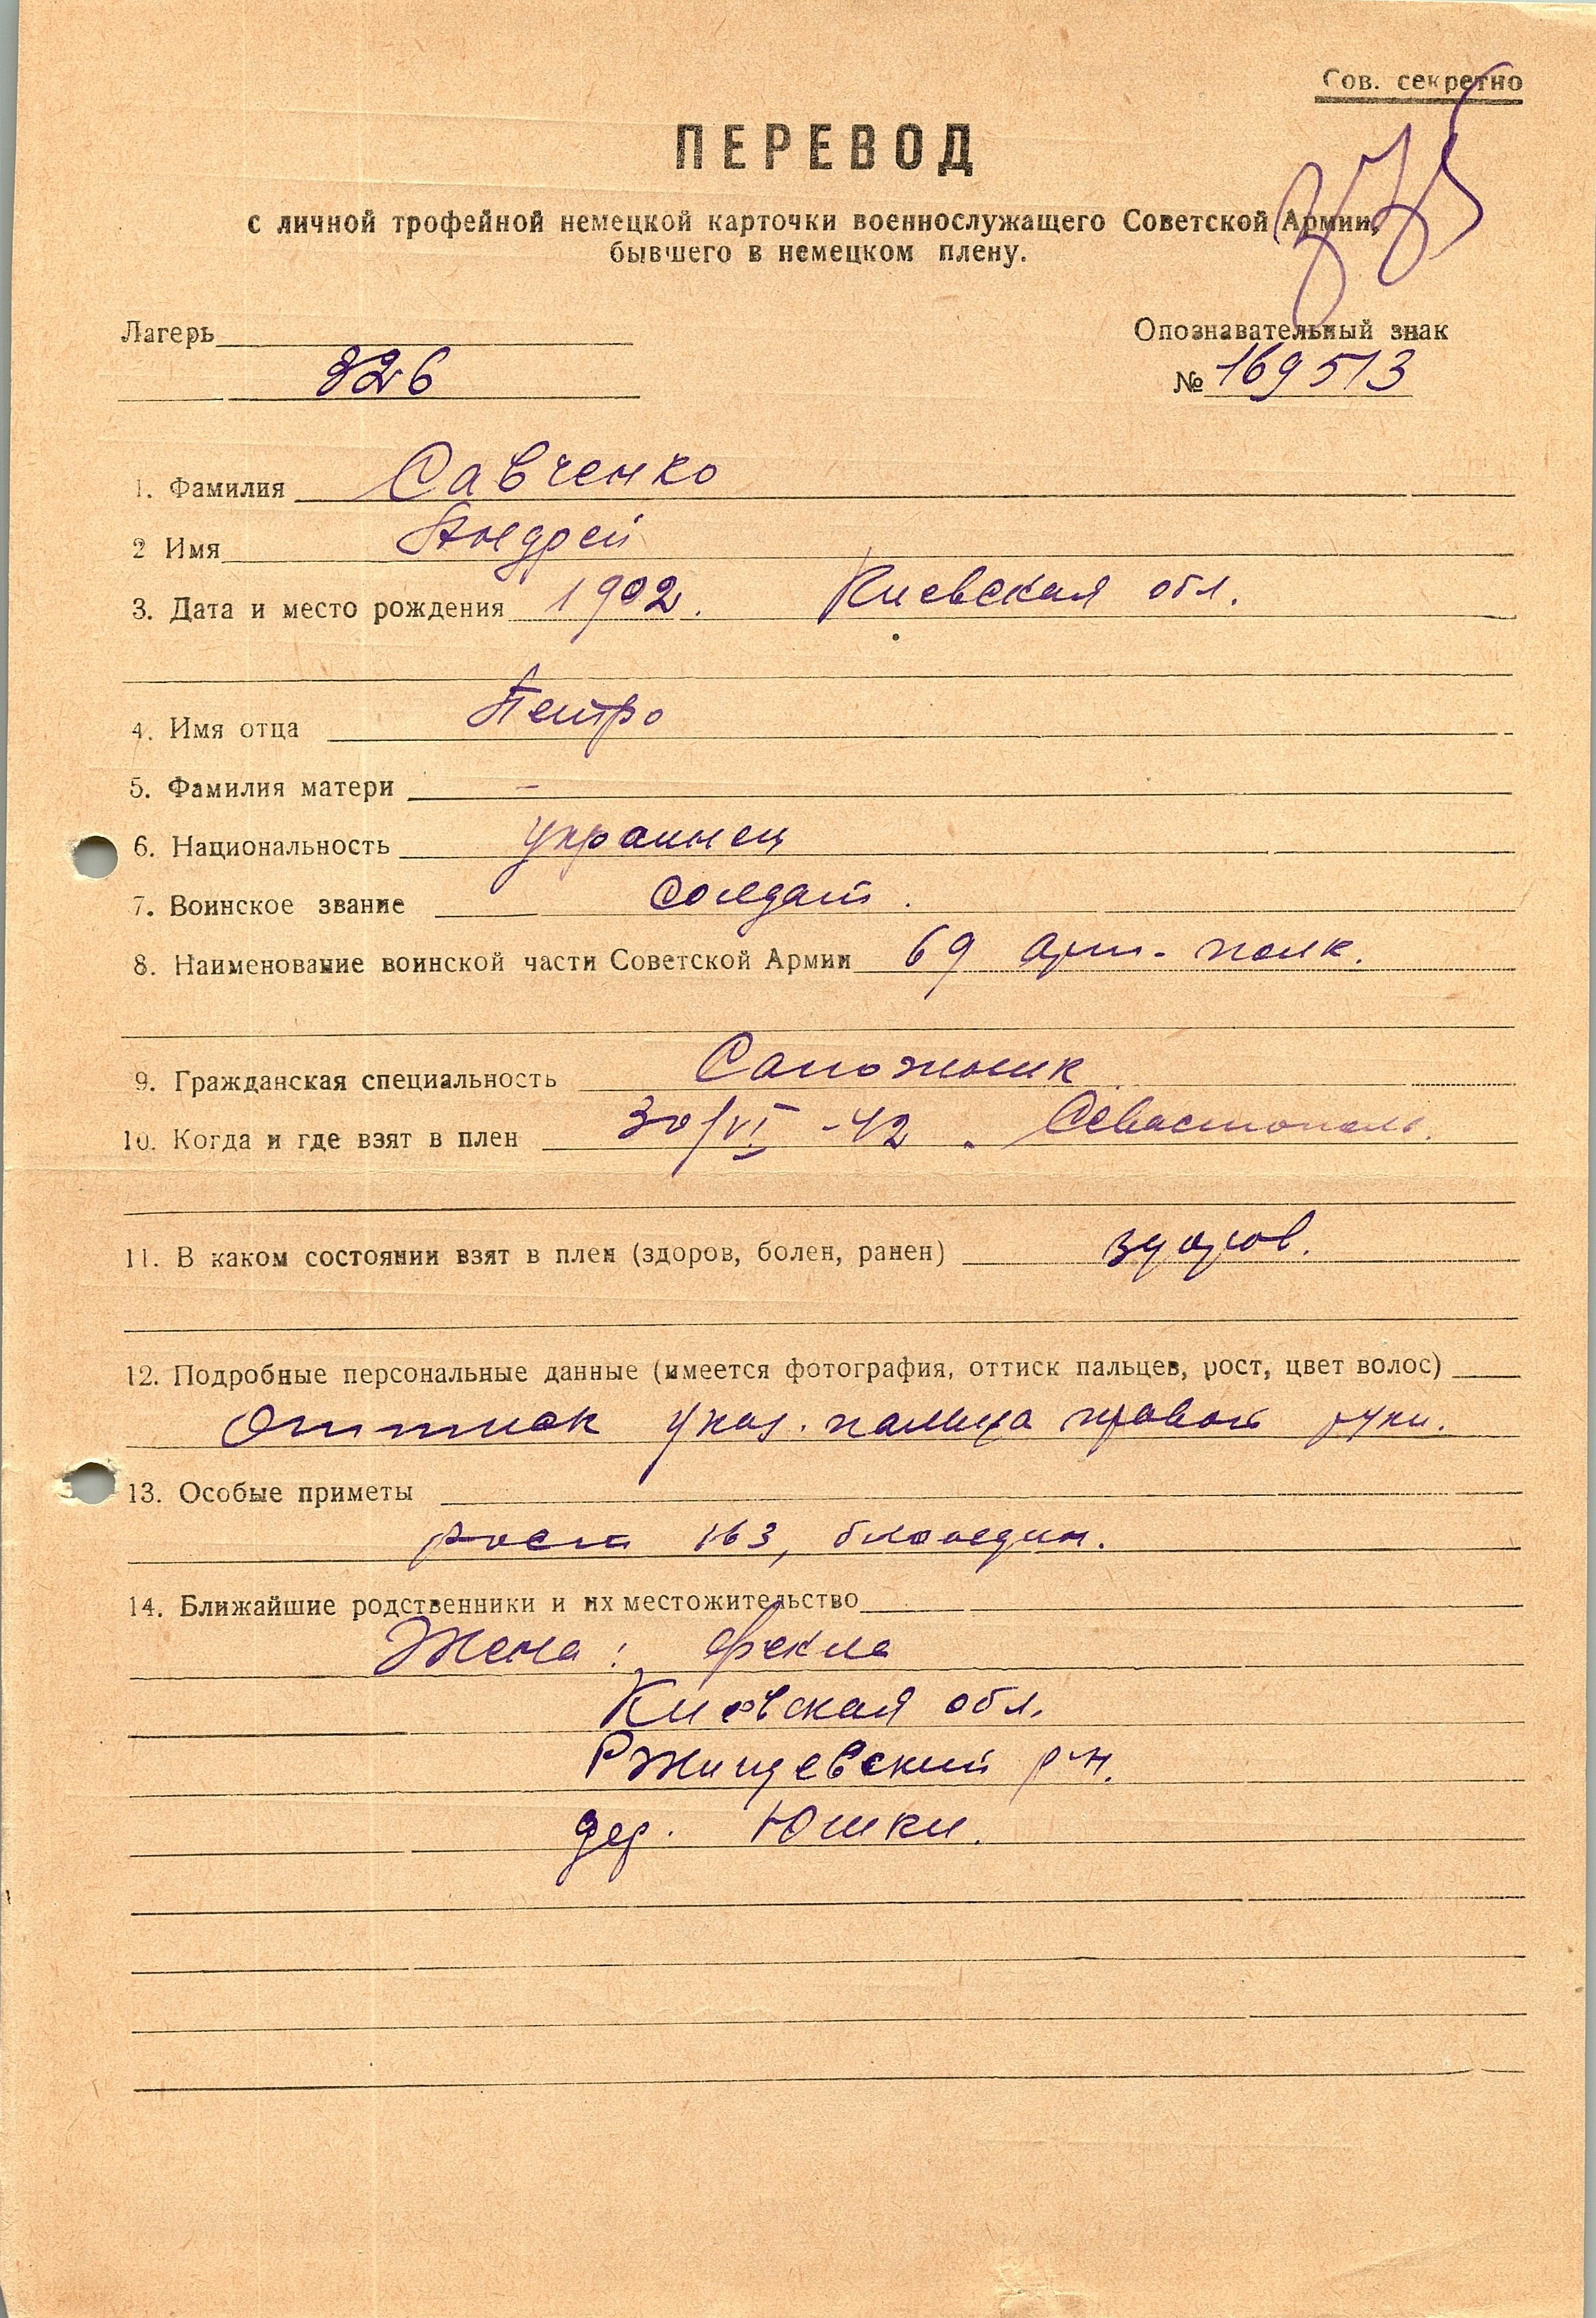 Сов. секретно
ПЕРЕВОД
с личной трофейной немецкой карточки военнослужащего Советской Армии,
бывшего в немецком плену.
Лагерь
326
Опознавательный знак
№ 169513
1. Фамилия Савченко
2 Имя Андрей
3. Дата и место рождения 1902. Киевская обл.
4. Имя отца Петро
5. Фамилия матери –
6. Национальность украинец
7. Воинское звание солдат.
8. Наименование воинской части Советской Армии 69 арт-полк.
9. Гражданская специальность Сапожник
10. Когда и где взят в плен 30/VI -42. Севастополь.
11. В каком состоянии взят в плен (здоров, болен, ранен) здоров.
12. Подробные персональные данные (имеется фотография, оттиск пальцев, рост, цвет волос)
Оттиск указ. пальца правой руки.
13. Особые приметы
рост 163, блондин.
14. Ближайшие родственники и их местожительство
Жена: Фекла
Киевская обл.
Ржищевский р-н.
дер. Юшки.